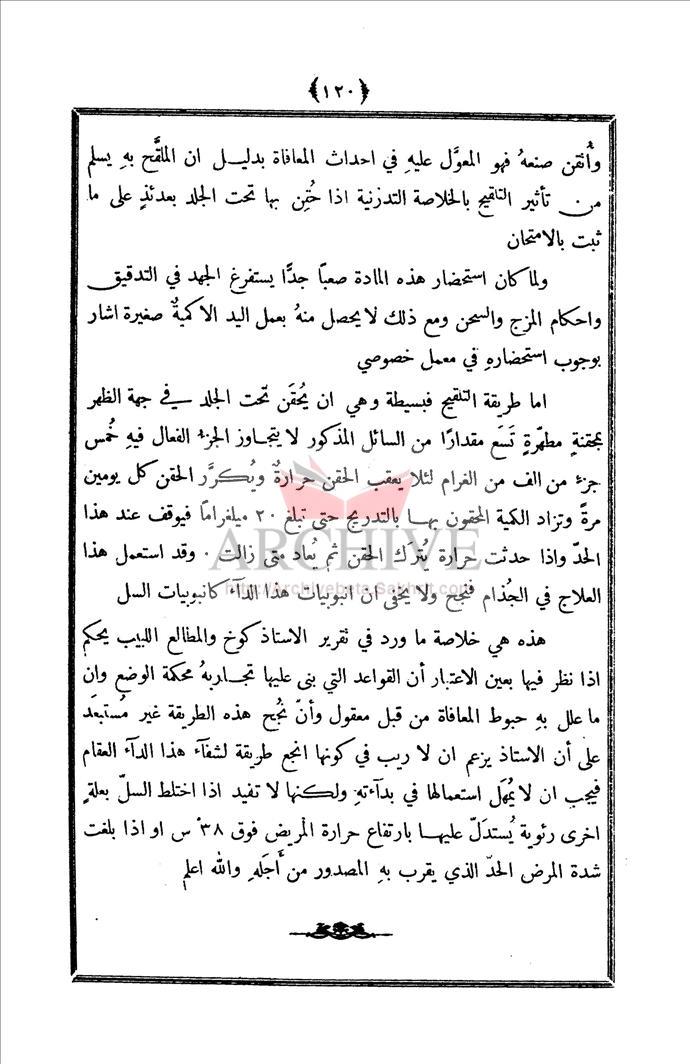 ﴿١٢٠﴾
وأُتقن صنعهُ فهو المعوَّل عليهِ في احداث المعافاة بدليل ان الملقَّح بهِ يسلم
من تأثير التلقيح بالخلاصة التدرنية اذا حُقِن بها تحت الجلد بعدئذٍ على ما
ثبت بالامتحان
ولما كان استحضار هذه المادة صعباً جدًّا يستفرغ الجهد في التدقيق
واحكام المزج والسحن ومع ذلك لا يحصل منهُ بعمل اليد الا كميةٌ صغيرة اشار
بوجوب استحضارهِ في معمل خصوصي
اما طريقة التلقيح فبسيطة وهي ان يُحقَن تحت الجلد في جهة الظهر
بمحقنةٍ مطهرّةٍ تَسَع مقدارًا من السائل المذكور لا يتجاوز الجزء الفعال فيهِ خُمس
جزء من الف من الغرام لئلا يعقب الحقن حرارةٌ ويُكرَّر الحقن كل يومين
مرةً وتزاد الكمية المحقون بها بالتدريج حتى تبلغ ٢٠ ميلغرامًا فيوقف عند هذا
الحدّ واذا حدثت حرارة يُترَك الحقن ثم يُعاد متى زالت ٠ وقد استعمل هذا
العلاج في الجُذام فنجح ولا يخفى ان انبوبيات هذا الدآء كانبوبيات السل
هذه هي خلاصة ما ورد في تقرير الاستاذ كوخ والمطالع اللبيب يحكم
اذا نظر فيها بعين الاعتبار أن القواعد التي بنى عليها تجاربهُ محكمة الوضع وان
ما علل بهِ حبوط المعافاة من قبل معقول وأنّ نُجح هذه الطريقة غير مُستبعَد
على أن الاستاذ يزعم ان لا ريب في كونها انجع طريقة لشفآء هذا الدآء العقام
فيجب ان لا يُمهَل استعمالها في بدآءتهِ ولكنها لا تفيد اذا اختلط السلّ بعلةٍ
اخرى رئوية يُستدَلّ عليها بارتفاع حرارة المريض فوق ٣٨ْ س او اذا بلغت
شدة المرض الحدّ الذي يقرب بهِ المصدور من أَجَلهِ والله اعلم
ARCHIVE
http://Archivebeta.Sakhrit.com